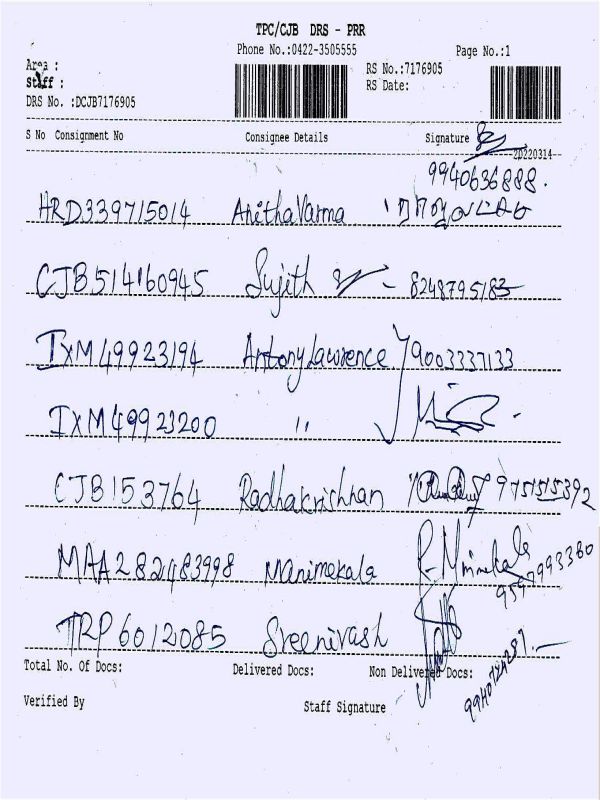 TPC/CJB DRS - PRR
Phone No.:0422-3505555 Page No.:1
Area :
Staff :
RS No.:7176905
RS Date:
DRS No. :DCJB7176905
S No Consignment No Consignee Details Signature
2p220314
9940636888.
HRD339715014 AnithaVarma
CJB514160945 Sujith - 8248795183
IXM49923194 Antony Lawrence 9003337133
IXM49923200 "
CJB153764 Radhakrishnan 9751515392
MAA282483998 Manimekala R. Manimekala 9597993380
TRP6012085 Sreenivash
Total No. Of Docs: Delivered Docs: Non Delivered Docs:
Verified By Staff Signature